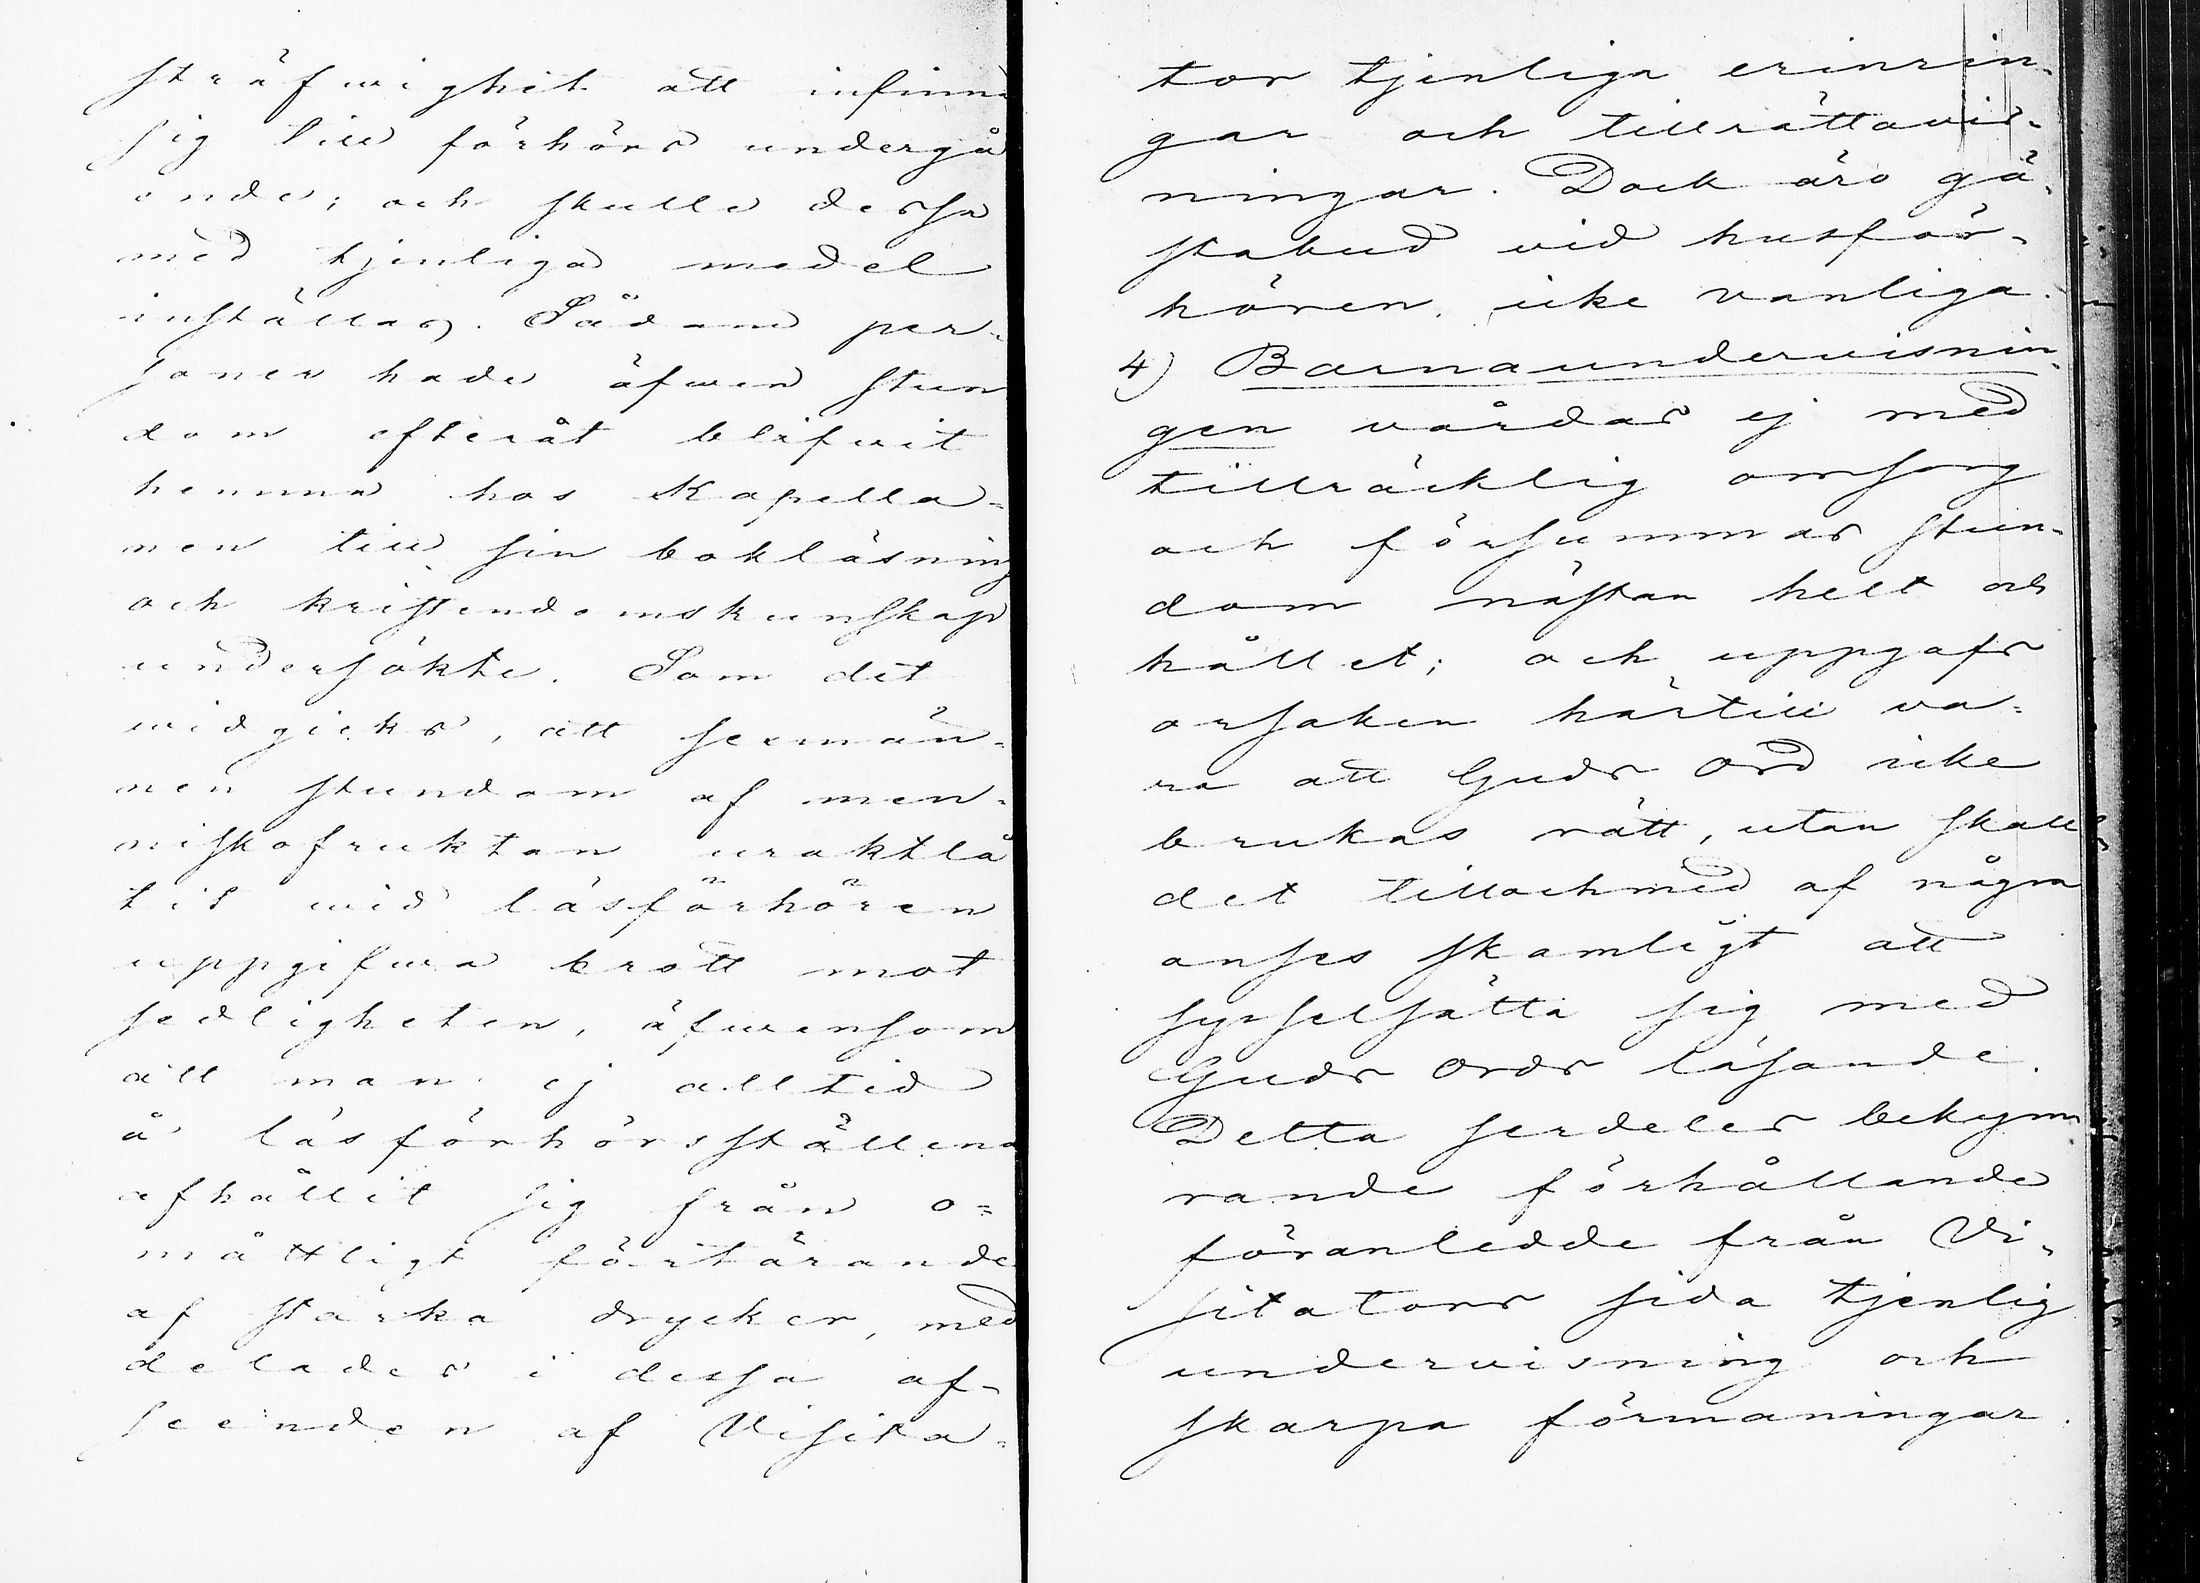 sträfwighet att infinna
sig till förhörs undergå
ende; och skulle dessa
med tjenliga medel
inställas. Sådane per-
soner hade äfwen stun
dom efteråt blifwit
hemma hos Kapella=
nen till sin bokläsning
och kristendomskunskap
undersökte. Som det
widgicks, att sexmän=
nen stundom af men=
niskofruktan uraktlå
tit wid läsförhören
uppgifwa brott mot
sedligheten, äfwensom
att man ej alltid
å läsförhörsställena
afhållit sig från o=
måttligt förtärande
af starka drycker, med
delades i dessa af-
seenden af Visita=
tor tjenliga erinrin-
gar och tillrättavis-
ningar. Dock äro gä-
stabud vid husför-
hören icke vanliga.
4) Barnaundervisnin-
gen vårdas ej med
tillräcklig omsorg
och försummas stun-
dom nästan helt och
hållet; och uppgafs
orsaken härtill va=
ra att Guds Ord icke
brukas rätt, utan skall
det tilloch med af några
anses skamligt att
sysselsätta sig med
Guds Ords läsande.
Detta serdeles bekym
rande förhållande
föranledde från Vi-
sitators sida tjenlig
undervisning och
skarpa förmaningar.